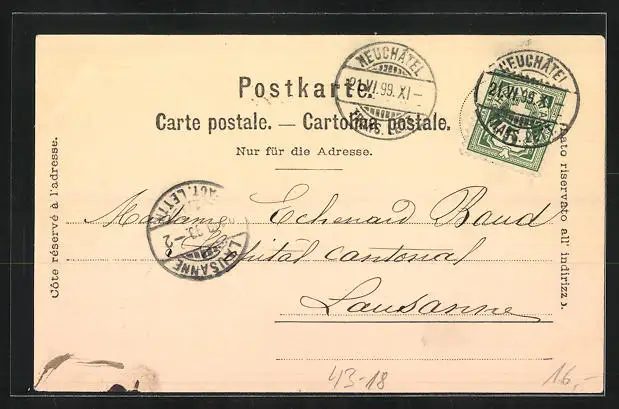 NEUCHÂTEL
21.VI.99.XI–
NEUCHÂTEL
21.VI.99.XI
Postkarte.
Carte postale. — Cartolina postale.
Nur für die Adresse.
Côte réservé à l'adresse.
Lato riservato all' indirizzo.
LAUSANNE
Madame Echenard Baud
Hôpital cantonal
Lausanne
43-18
16,-